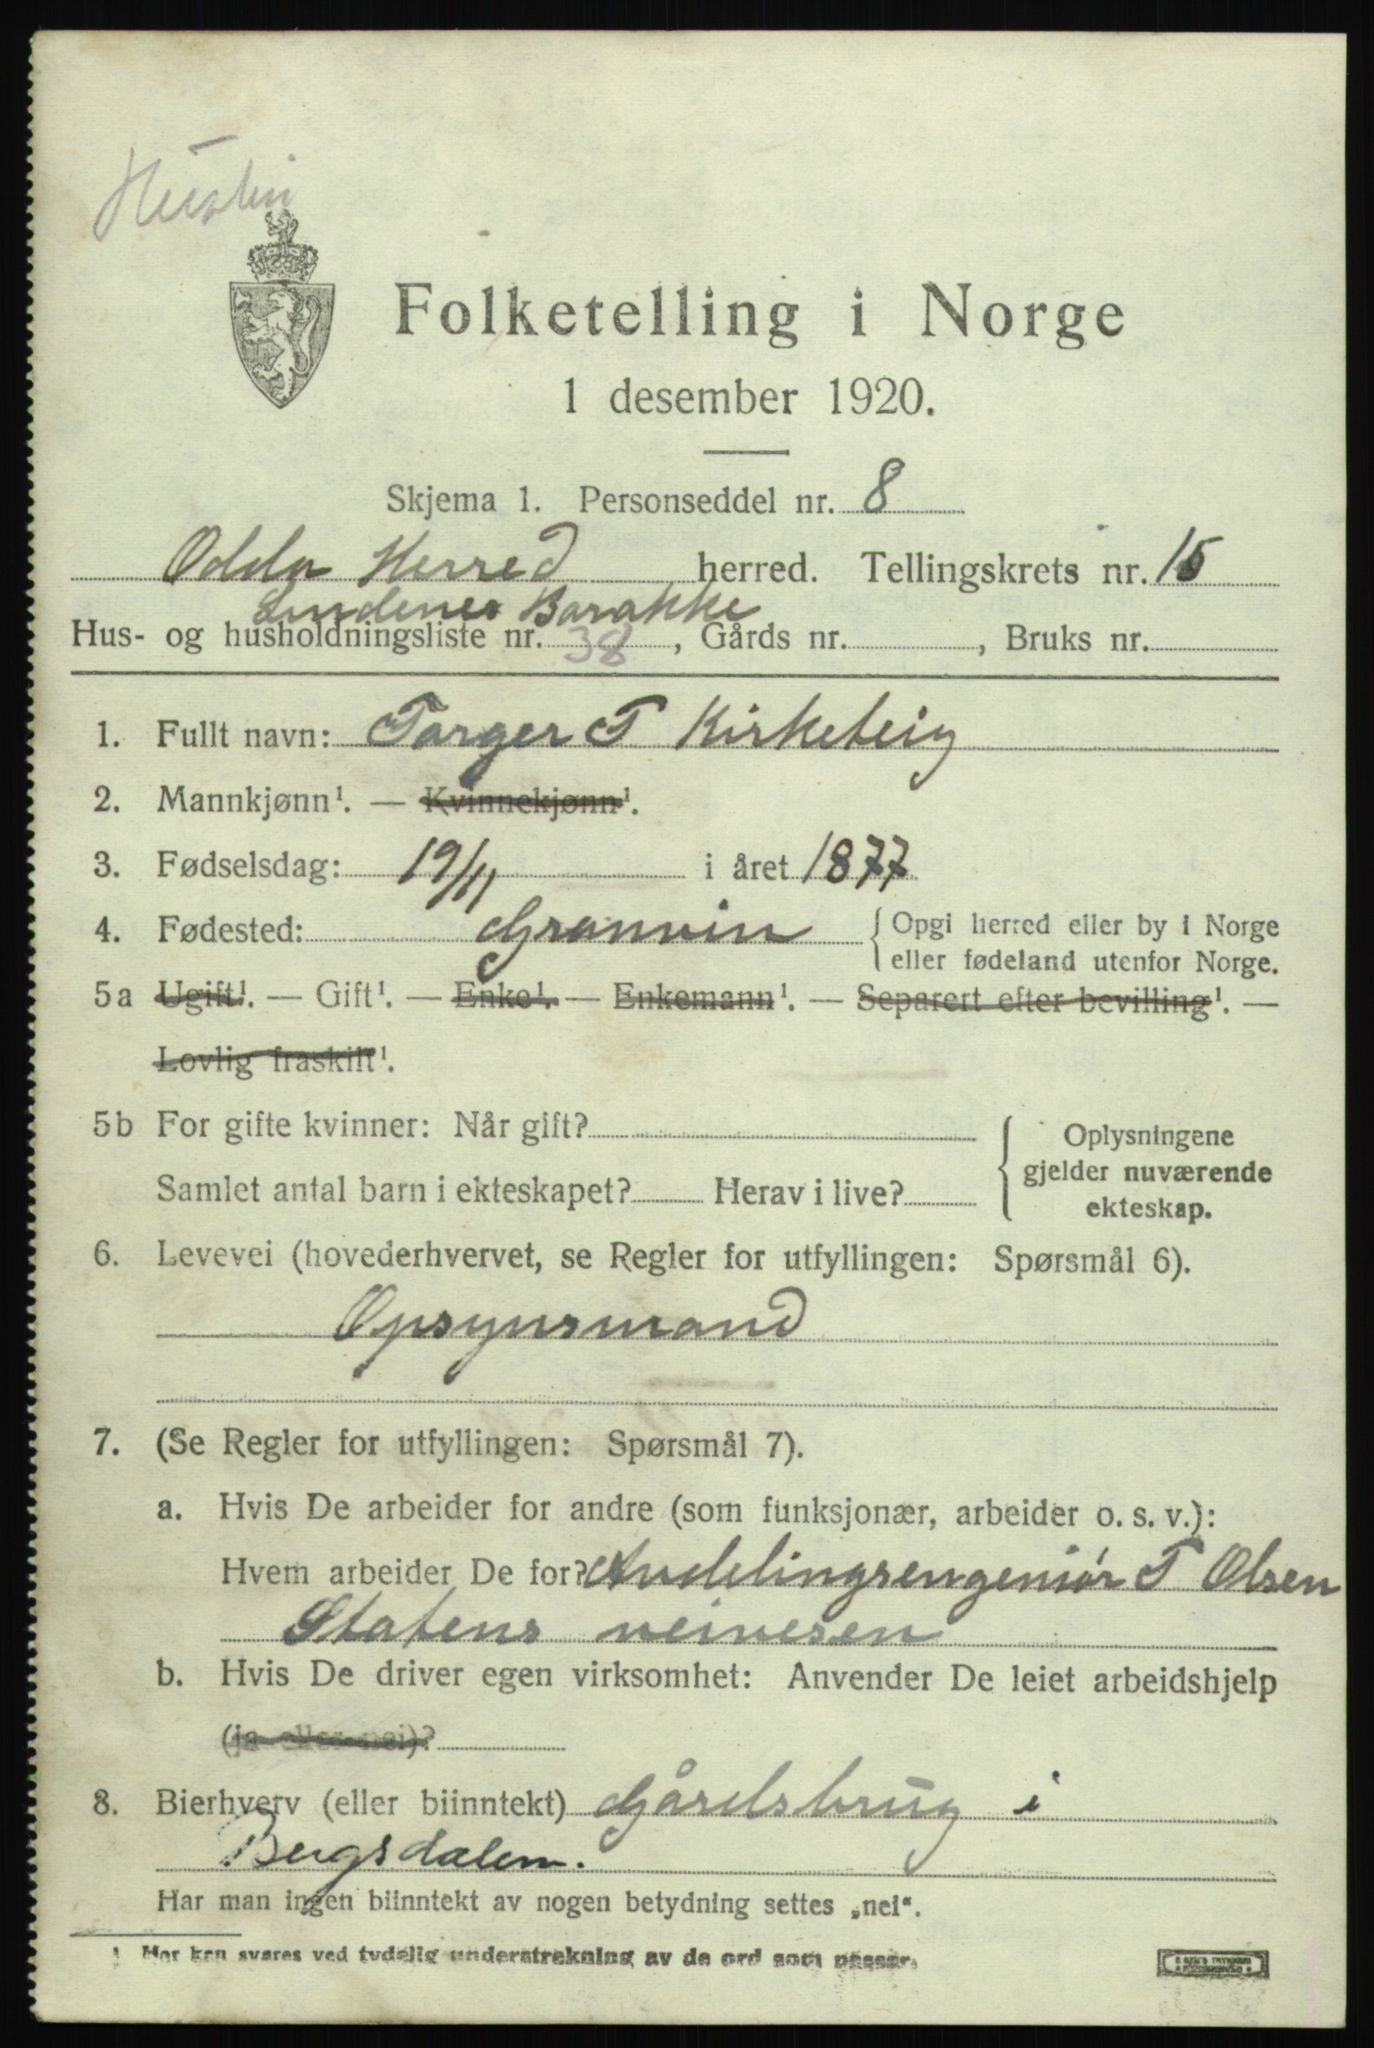 Folketelling i Norge
1 desember 1920.
Skjema 1. Personseddel nr. 8
Odda Herred herred. Tellingskrets nr. 15
Lindenes Barakke
Hus- og husholdningsliste nr. 38, Gårds nr. , Bruks nr.
1. Fullt navn: Torger T Kirketeig
2. Mannkjønn¹. — Kvinnekjønn¹.
3. Fødselsdag: 19/11 i året 1877
4. Fødested: Granvin { Opgi herred eller by i Norge
eller fødeland utenfor Norge.
5a Ugift¹. — Gift¹. — Enke¹. — Enkemann¹. — Separert efter bevilling¹. —
Lovlig fraskilt¹.
5b For gifte kvinner: Når gift?
Samlet antal barn i ekteskapet? Herav i live?
{ Oplysningene
gjelder nuværende
ekteskap.
6. Levevei (hovederhvervet, se Regler for utfyllingen: Spørsmål 6).
Opsynsmand
7. (Se Regler for utfyllingen: Spørsmål 7).
a. Hvis De arbeider for andre (som funksjonær, arbeider o. s. v.):
Hvem arbeider De for? Avdelingsengeniør T Olsen
Statens veivesen
b. Hvis De driver egen virksomhet: Anvender De leiet arbeidshjelp
(ja eller nei)?
8. Bierhverv (eller biinntekt) Gårdsbrug i
Bergsdalen.
Har man ingen biinntekt av nogen betydning settes „nei“.
¹ Her kan svares ved tydelig understrekning av de ord som passer.